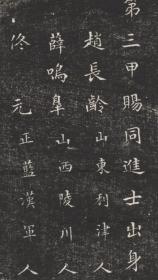 第三甲賜同進士出身
趙長齡山東利津人
薛鳴臯山西陵川人
佟元正藍漢軍人